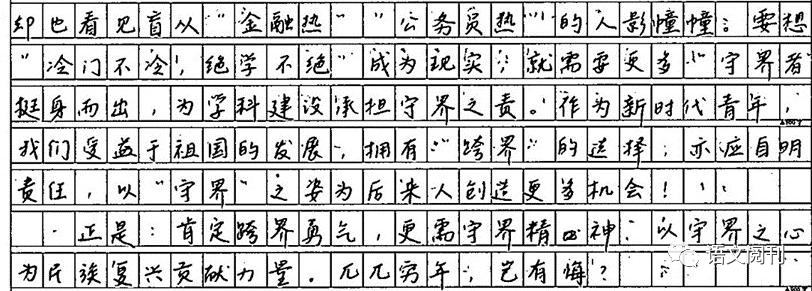 却也看见盲从“金融热”“公务员热”的人影幢幢；要想
“冷门不冷，绝学不绝”成为现实，就需要更多“守界者”
挺身而出，为学科建设承担守界之责。作为新时代青年，
我们受益于祖国的发展，拥有“跨界”的选择，亦应自明
责任，以“守界”之姿为后来人创造更多机会！
正是：肯定跨界勇气，更需守界精神；以守界之心
为民族复兴贡献力量。兀兀穷年，岂有悔？
语文阅刊